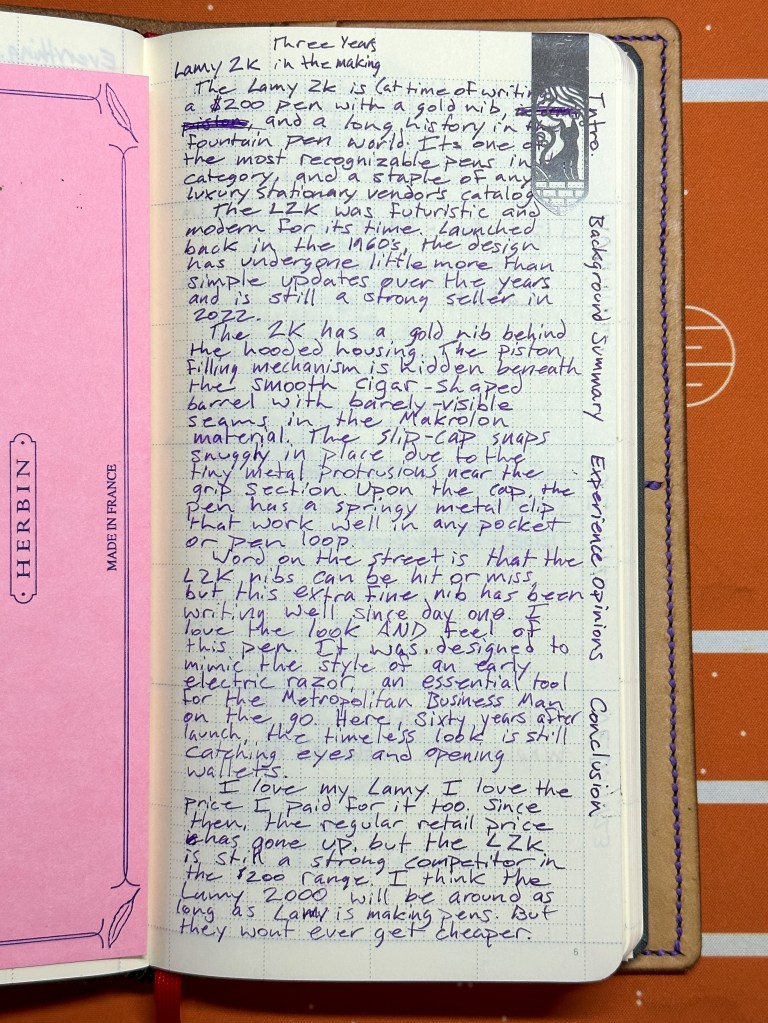 Everything.
HERBIN
MADE IN FRANCE
Three Years
Lamy 2K in the making
The Lamy 2K is (at time of writing
a $200 pen with a gold nib,
and a long history in
fountain pen world. Its one of
the most recognizable pens in
category, and a staple of any
luxury stationary vendors catalog
The L2K was futuristic and
modern for its time. Launched
back in the 1960's, the design
has undergone little more than
simple updates over the years
and is still a strong seller in
2022.
The 2K has a gold nib behind
the hooded housing. The piston
filling mechanism is hidden beneath
the smooth cigar-shaped
barrel with barely-visible
seams in the Makrolon
material. The slip-cap snaps
snuggly in place due to the
tiny metal protrusions near the
grip section. Upon the cap, the
pen has a springy metal clip
that work well in any pocket
or pen loop.
Word on the street is that the
L2K nibs can be hit or miss,
but this extra fine nib has been
writing well since day one. I
love the look AND feel of
this pen. It was designed to
mimic the style of an early
electric razor, an essential tool
for the Metropolitan Business Man
on the go. Here, sixty years after
launch, the timeless look is still
catching eyes and opening
wallets.
I love my Lamy. I love the
price I paid for it too. Since
then, the regular retail price
has gone up, but the L2K
is still a strong competitor in
the $200 range. I think the
Lamy 2000 will be around as
long as Lamy is making pens. But
they wont ever get cheaper.
Intro.
Background Summary
Experience Opinions
Conclusion
5